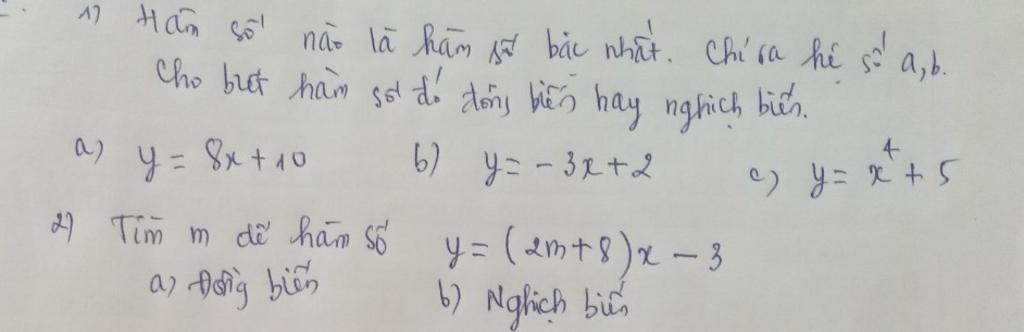 1) Hàm số nào là hàm số bậc nhất. Chỉ ra hệ số a, b.
Cho biết hàm số đó đồng biến hay nghịch biến.
a) y = 8x + 10 b) y = - 3x + 2 c) y = x⁴ + 5
2) Tìm m để hàm số y = (2m + 8)x - 3
a) Đồng biến b) Nghịch biến